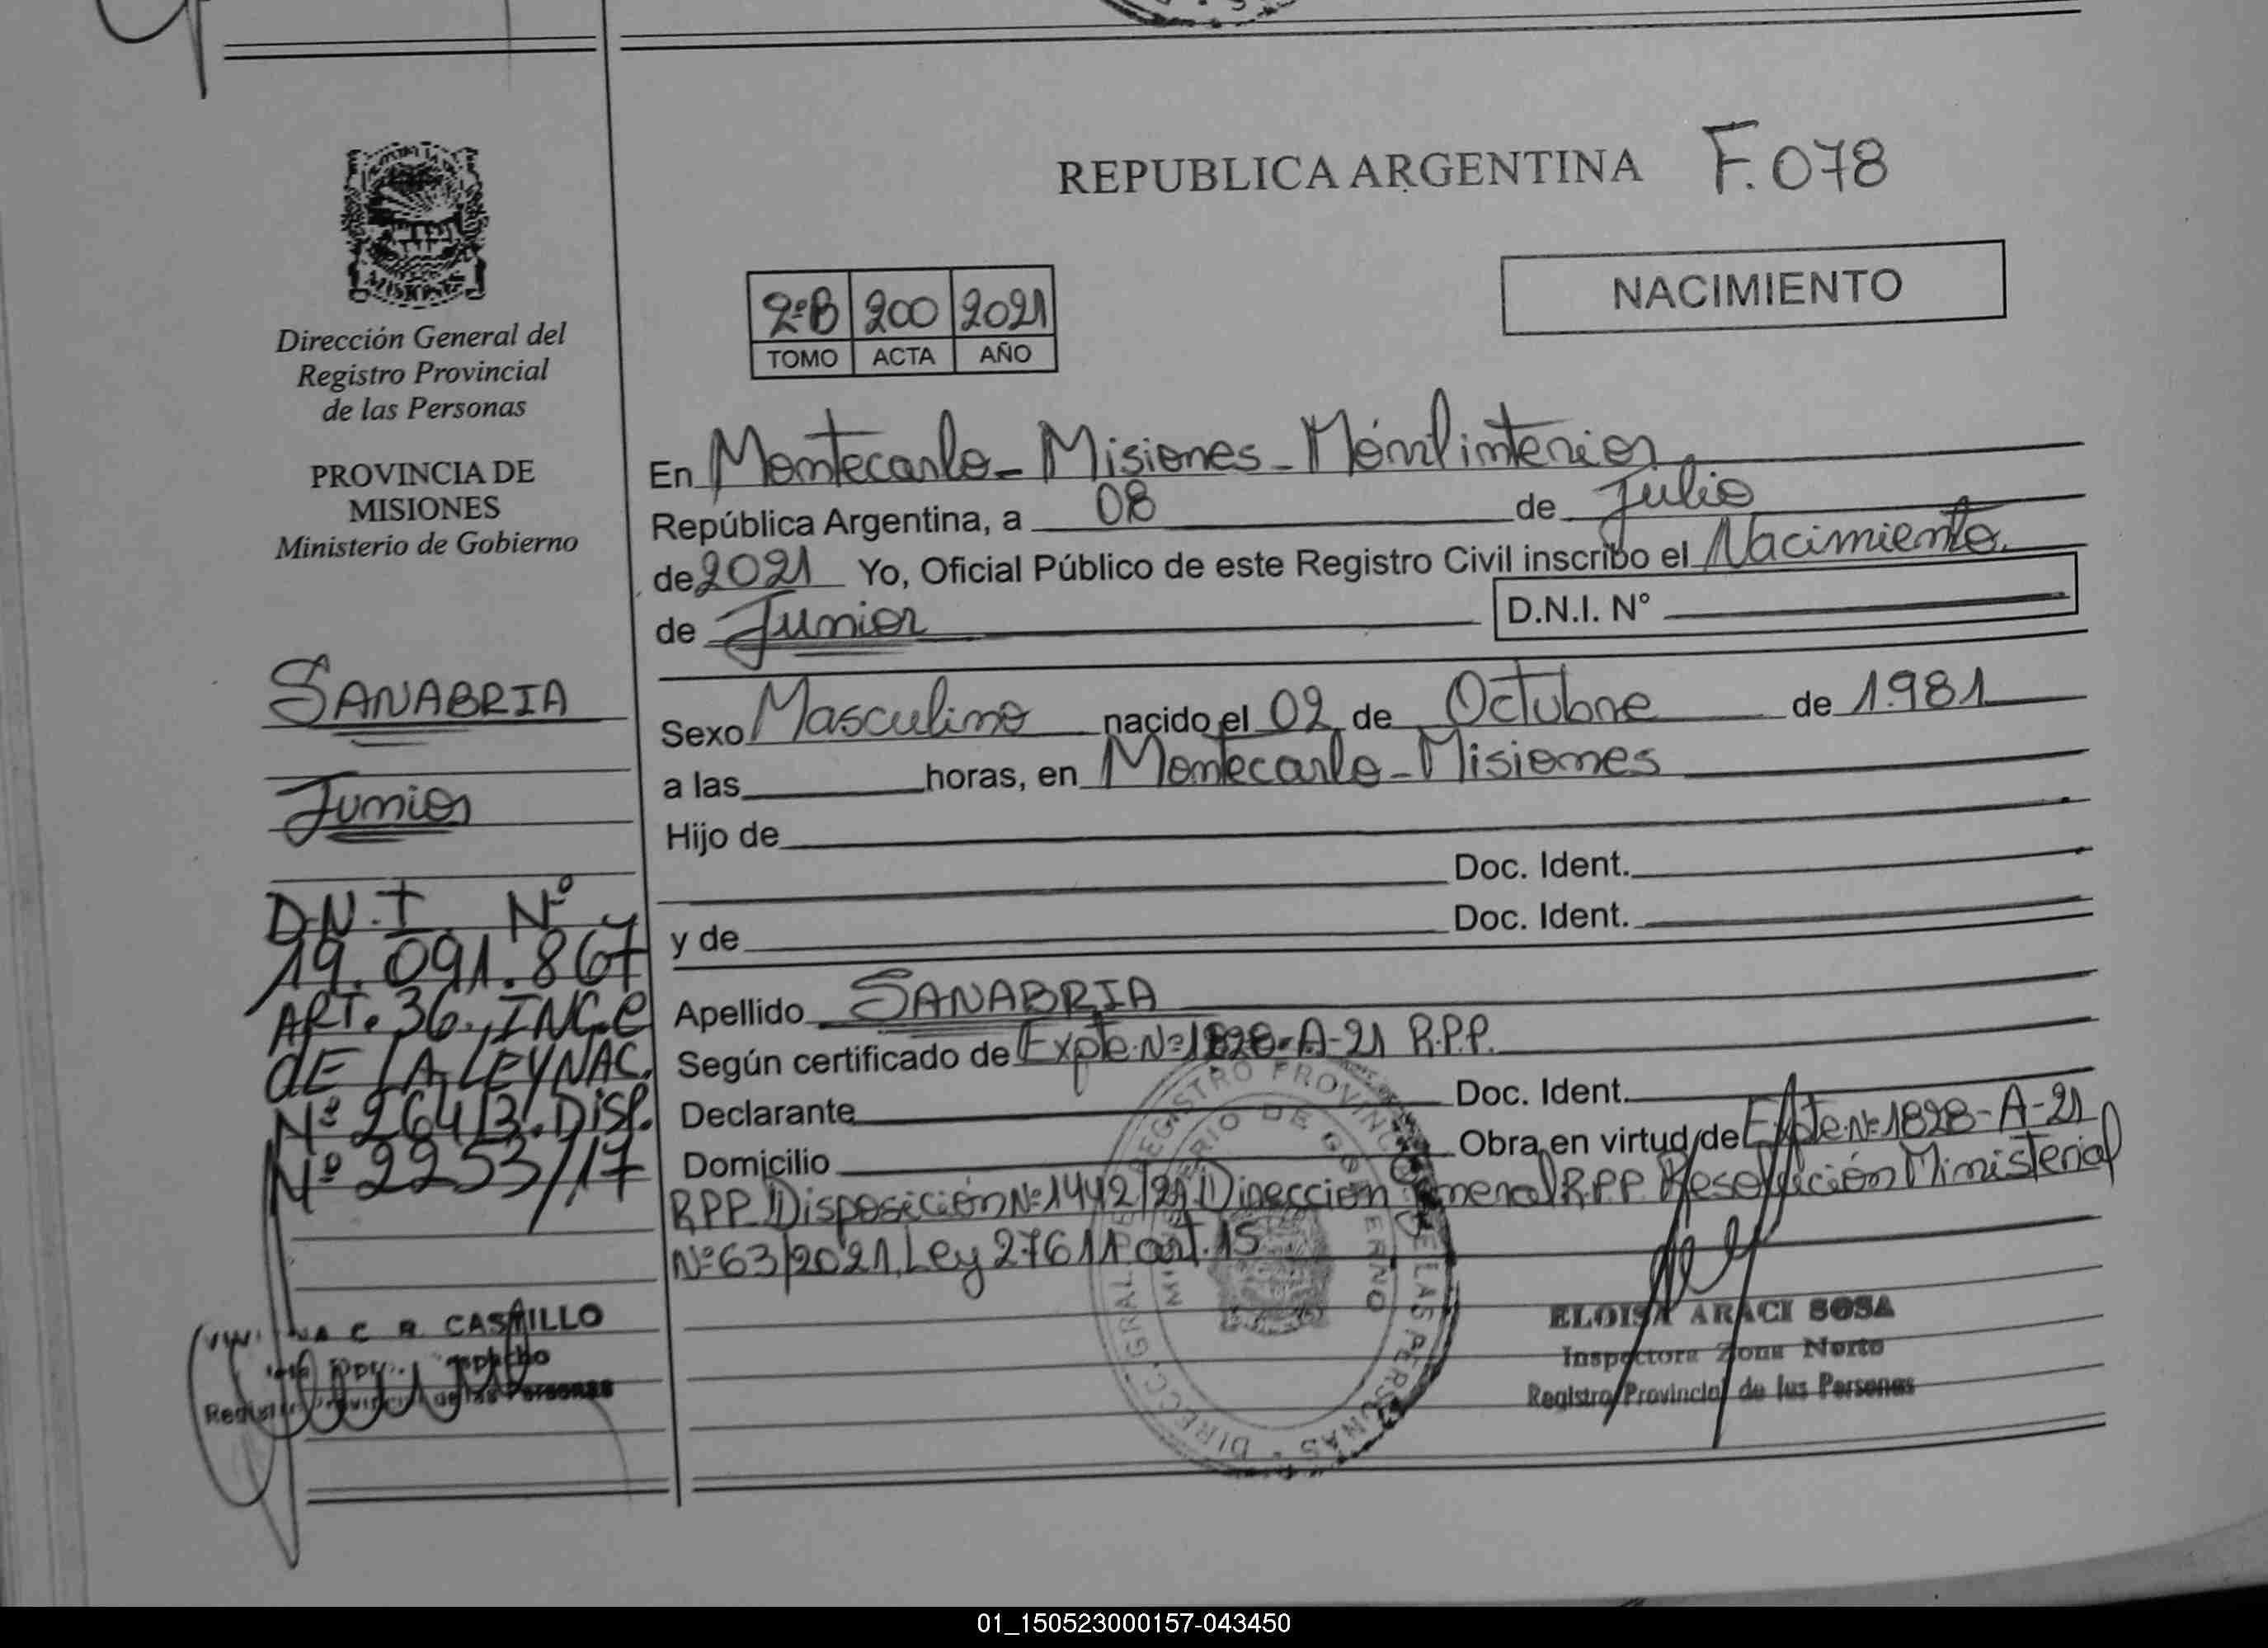 REPUBLICA ARGENTINA F. 078
NACIMIENTO
2ºB 200 2021
TOMO ACTA AÑO
Dirección General del
Registro Provincial
de las Personas
PROVINCIA DE
MISIONES
Ministerio de Gobierno
SANABRIA
Junior
D.N.I. Nº
19.091.867
ART. 36., INC. e
dE LA LEY NAC.
Nº 26413. DISP.
Nº 2253/17
C R CASTILLO
Personas
En Montecarlo - Misiones - Móvil interior
República Argentina, a 08 de Julio
de 2021 Yo, Oficial Público de este Registro Civil inscribo el Nacimiento.
de Junior D.N.I. Nº
Sexo Masculino nacido el 02 de Octubre de 1.981
a las horas, en Montecarlo - Misiones
Hijo de
Doc. Ident.
y de Doc. Ident.
Apellido SANABRIA
Según certificado de Expte. Nº 1828-A-21 R.P.P.
Declarante Doc. Ident.
Domicilio Obra en virtud de Expte Nº 1828-A-21
R.P.P. Disposición Nº 1442/21 Dirección General R.P.P. Resolución Ministerial
Nº 63/2021, Ley 27611 art. 15
ELOISA ARACI SOSA
Inspectora Zona Norte
Registro Provincial de las Personas
01_150523000157-043450